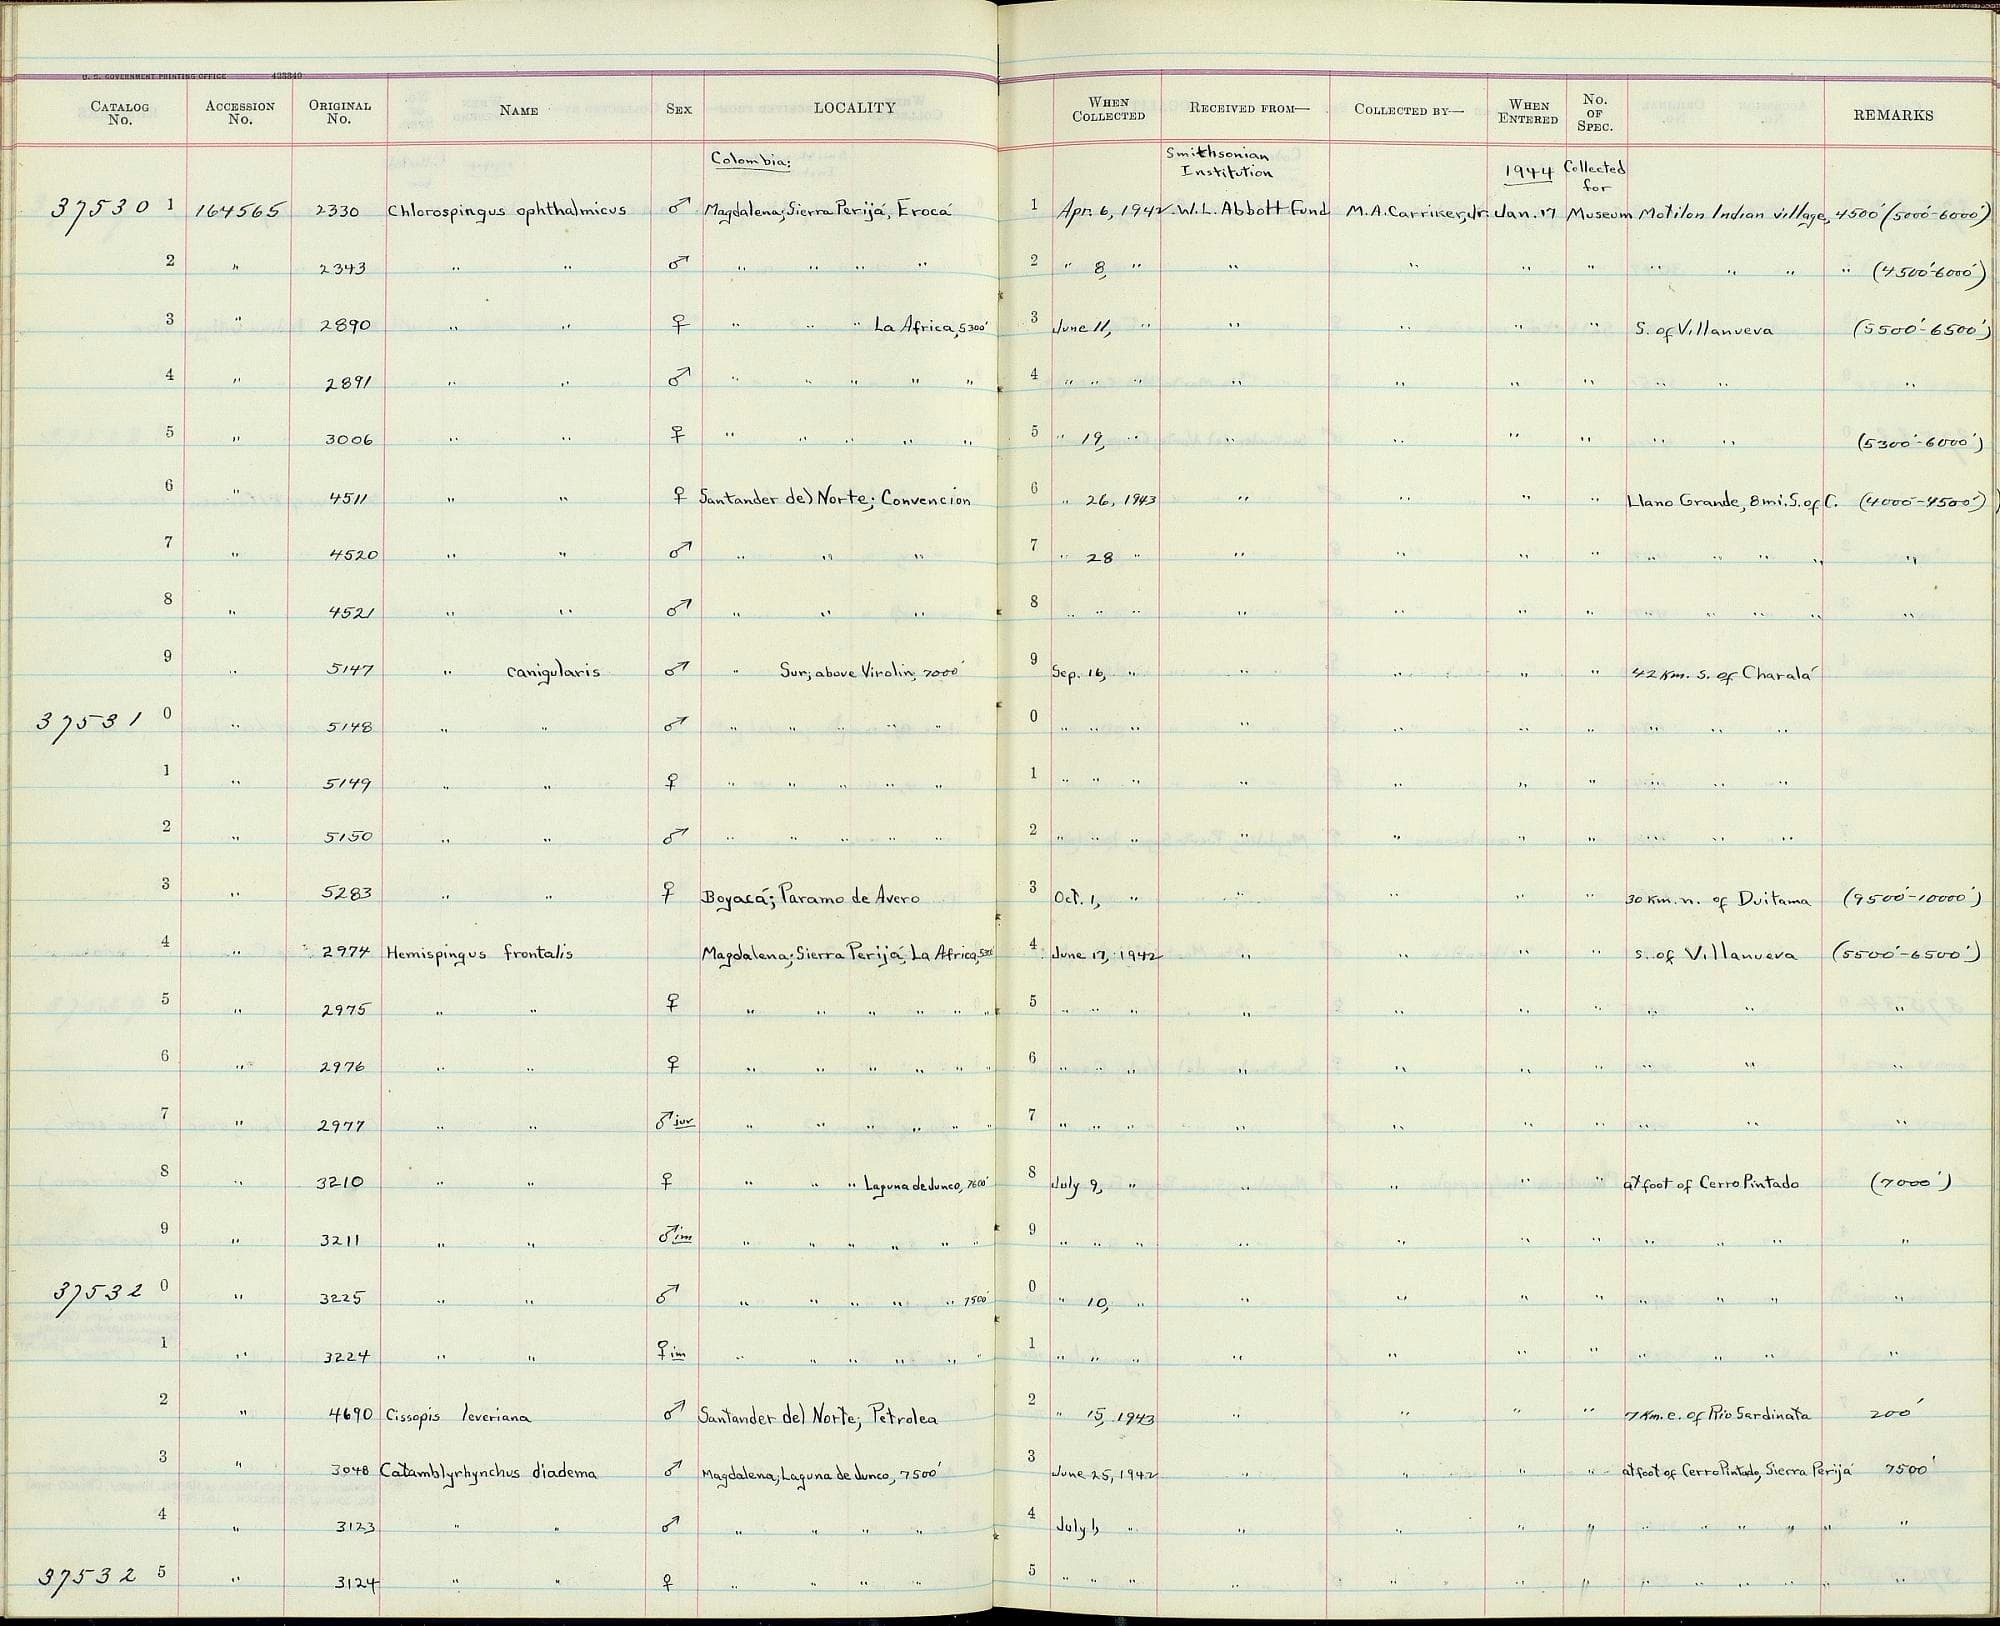 U. S. GOVERNMENT PRINTING OFFICE 433340
CATALOG No. ACCESSION No. ORIGINAL No. NAME SEX LOCALITY WHEN COLLECTED RECEIVED FROM— COLLECTED BY— WHEN ENTERED No. OF SPEC. REMARKS
Colombia: Smithsonian Institution 1944 Collected for
37530 1 164565 2330 Chlorospingus ophthalmicus ♂ Magdalena; Sierra Perijá, Eroca 1 Apr. 6, 1942 W.L. Abbott Fund M.A. Carriker, Jr. Jan. 17 Museum Motilon Indian village, 4500' (5000'-6000')
2 " 2343 " " ♂ " " " " 2 " 8, " " " " " " " " " (4500'-6000')
3 " 2890 " " ♀ " " " La Africa, 5300' 3 June 11, " " " " " S. of Villanueva (5500'-6500')
4 " 2891 " " ♂ " " " " " 4 " " " " " " " " " "
5 " 3006 " " ♀ " " " " " 5 " 19, " " " " " " " (5300'-6000')
6 " 4511 " " ♀ Santander del Norte; Convencion 6 " 26, 1943 " " " " Llano Grande, 8 mi. S. of C. (4000'-4500')
7 " 4520 " " ♂ " " " 7 " 28 " " " " " " " " " "
8 " 4521 " " ♂ " " " 8 " " " " " " " " " " " "
9 " 5147 " canigularis ♂ " Sur; above Virolin, 7000' 9 Sep. 16, " " " " " 42 Km. s. of Charalá
37531 0 " 5148 " " ♂ " " " " " 0 " " " " " " " " " "
1 " 5149 " " ♀ " " " " " 1 " " " " " " " " " "
2 " 5150 " " ♂ " " " " " 2 " " " " " " " " " "
3 " 5283 " " ♀ Boyacá; Paramo de Avero 3 Oct. 1, " " " " " 30 Km. n. of Duitama (9500'-10000')
4 " 2974 Hemispingus frontalis Magdalena; Sierra Perijá, La Africa, 4 June 17, 1942 " " " " s. of Villanueva (5500'-6500')
5 " 2975 " " ♀ " " " " " " 5 " " " " " " " " " "
6 " 2976 " " ♀ " " " " " " 6 " " " " " " " " " "
7 " 2977 " " ♂ juv " " " " " " 7 " " " " " " " " " "
8 " 3210 " " ♀ " " " Laguna de Junco, 7600' 8 July 9, " " " " " at foot of Cerro Pintado (7000')
9 " 3211 " " ♂ im " " " " " " 9 " " " " " " " " " " "
37532 0 " 3225 " " ♂ " " " " " 7500' 0 " 10, " " " " " " " " "
1 " 3224 " " ♀ im " " " " " " 1 " " " " " " " " " " "
2 " 4690 Cissopis leveriana ♂ Santander del Norte; Petrolea 2 " 15, 1943 " " " " 7 Km. e. of Rio Sardinata 200'
3 " 3048 Catamblyrhynchus diadema ♂ Magdalena; Laguna de Junco, 7500' 3 June 25, 1942 " " " " at foot of Cerro Pintado, Sierra Perijá 7500'
4 " 3123 " " ♂ " " " " 4 July 1, " " " " " " " " " " "
37532 5 " 3124 " " ♀ " " " " 5 " " " " " " " " " " " " "